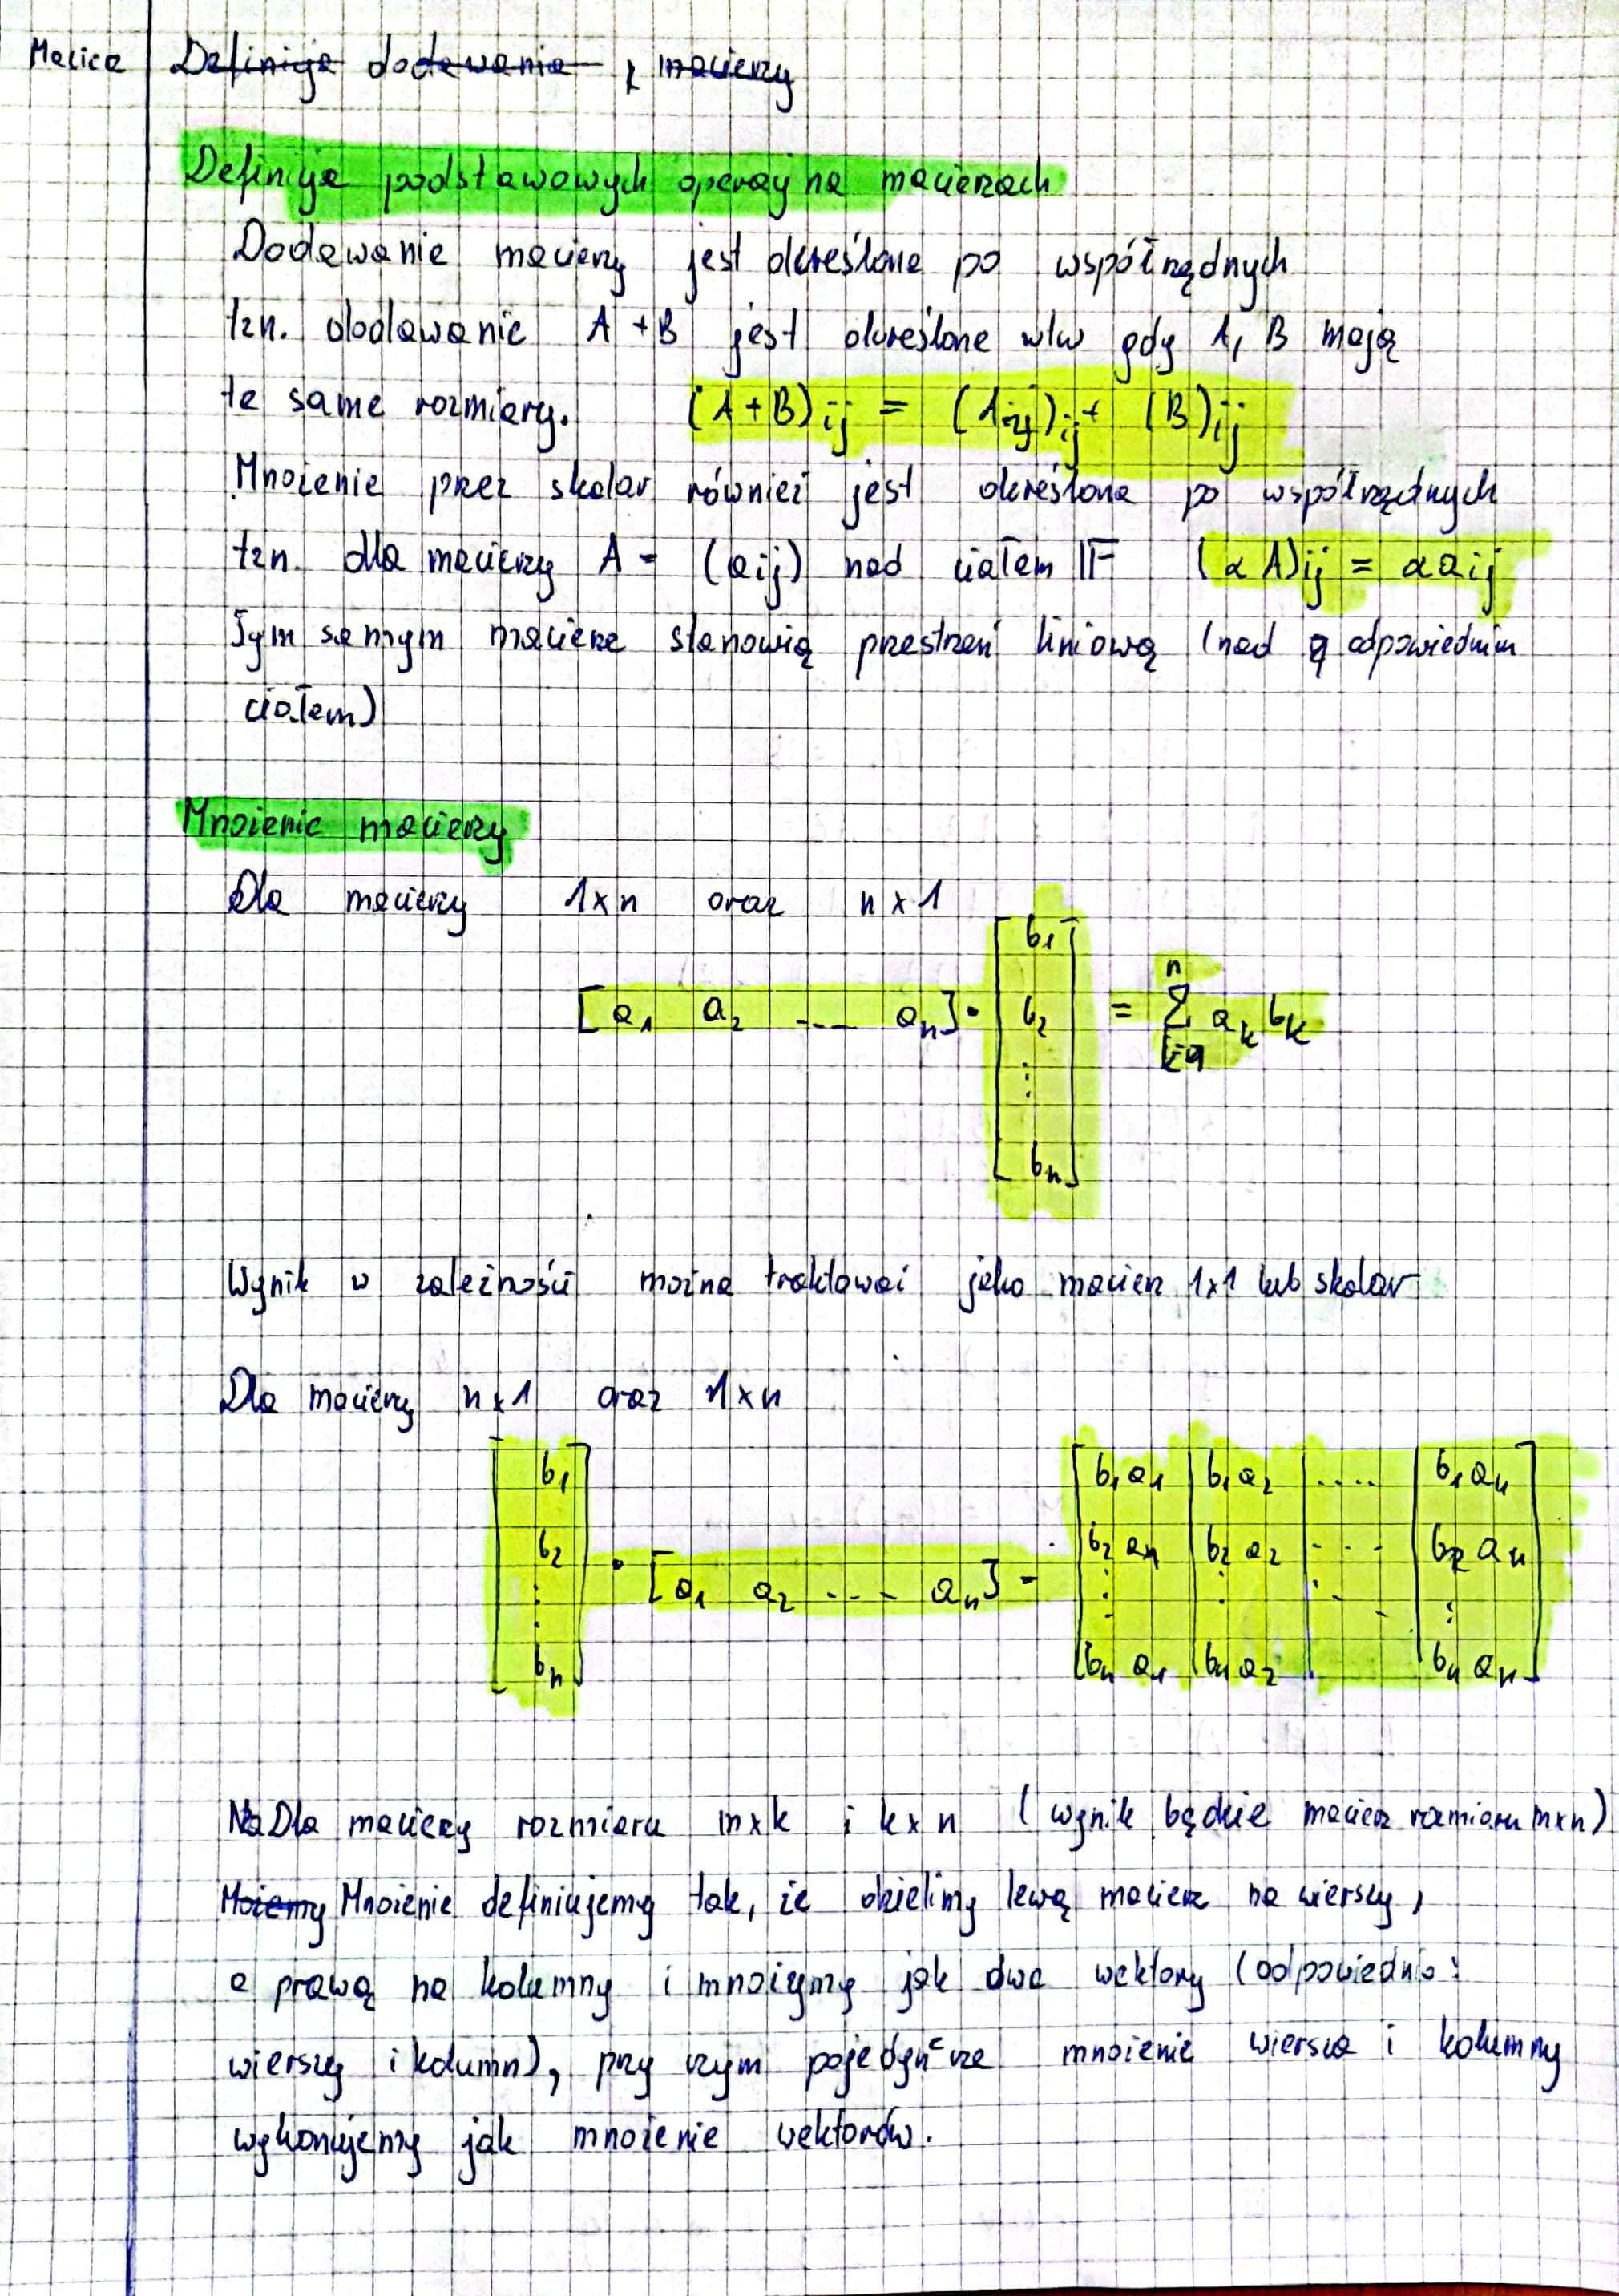 Macice Definicja dodawania z macierzy
Definicja podstawowych operacji na macierzach
Dodawanie macierzy jest określone po współrzędnych
tzn. dodawanie A + B jest określone wtw gdy A, B mają
te same rozmiary. (A+B)ij = (Aij)ij + (B)ij
Mnożenie przez skalar również jest określone po współrzędnych
tzn. dla macierzy A = (aij) nad ciałem 𝔽 (αA)ij = αaij
Tym samym macierze stanowią przestrzeń liniową (nad odpowiednim
ciałem)
Mnożenie macierzy
Dla macierzy 1×n oraz n×1
[a₁ a₂ ... aₙ] · [b₁ b₂ ⋮ bₙ] = Σ_{k=1}^{n} aₖbₖ
Wynik w zależności można traktować jako macierz 1×1 lub skalar
Dla macierzy n×1 oraz 1×n
[b₁ b₂ ⋮ bₙ] · [a₁ a₂ ... aₙ] =
b₁a₁ | b₁a₂ | .... | b₁aₙ
b₂a₁ | b₂a₂ | ... | b₂aₙ
⋮ ⋮ ⋱ ⋮
bₙa₁ | bₙa₂ | | bₙaₙ
Na Dla macierzy rozmiaru m×k i k×n (wynik będzie macierz rozmiaru m×n)
Możemy Mnożenie definiujemy tak, że dzielimy lewą macierz na wierszy,
a prawą na kolumny i mnożymy jak dwa wektory (odpowiednio:
wierszy i kolumn), przy czym pojedyńcze mnożenie wiersza i kolumny
wykonujemy jak mnożenie wektorów.